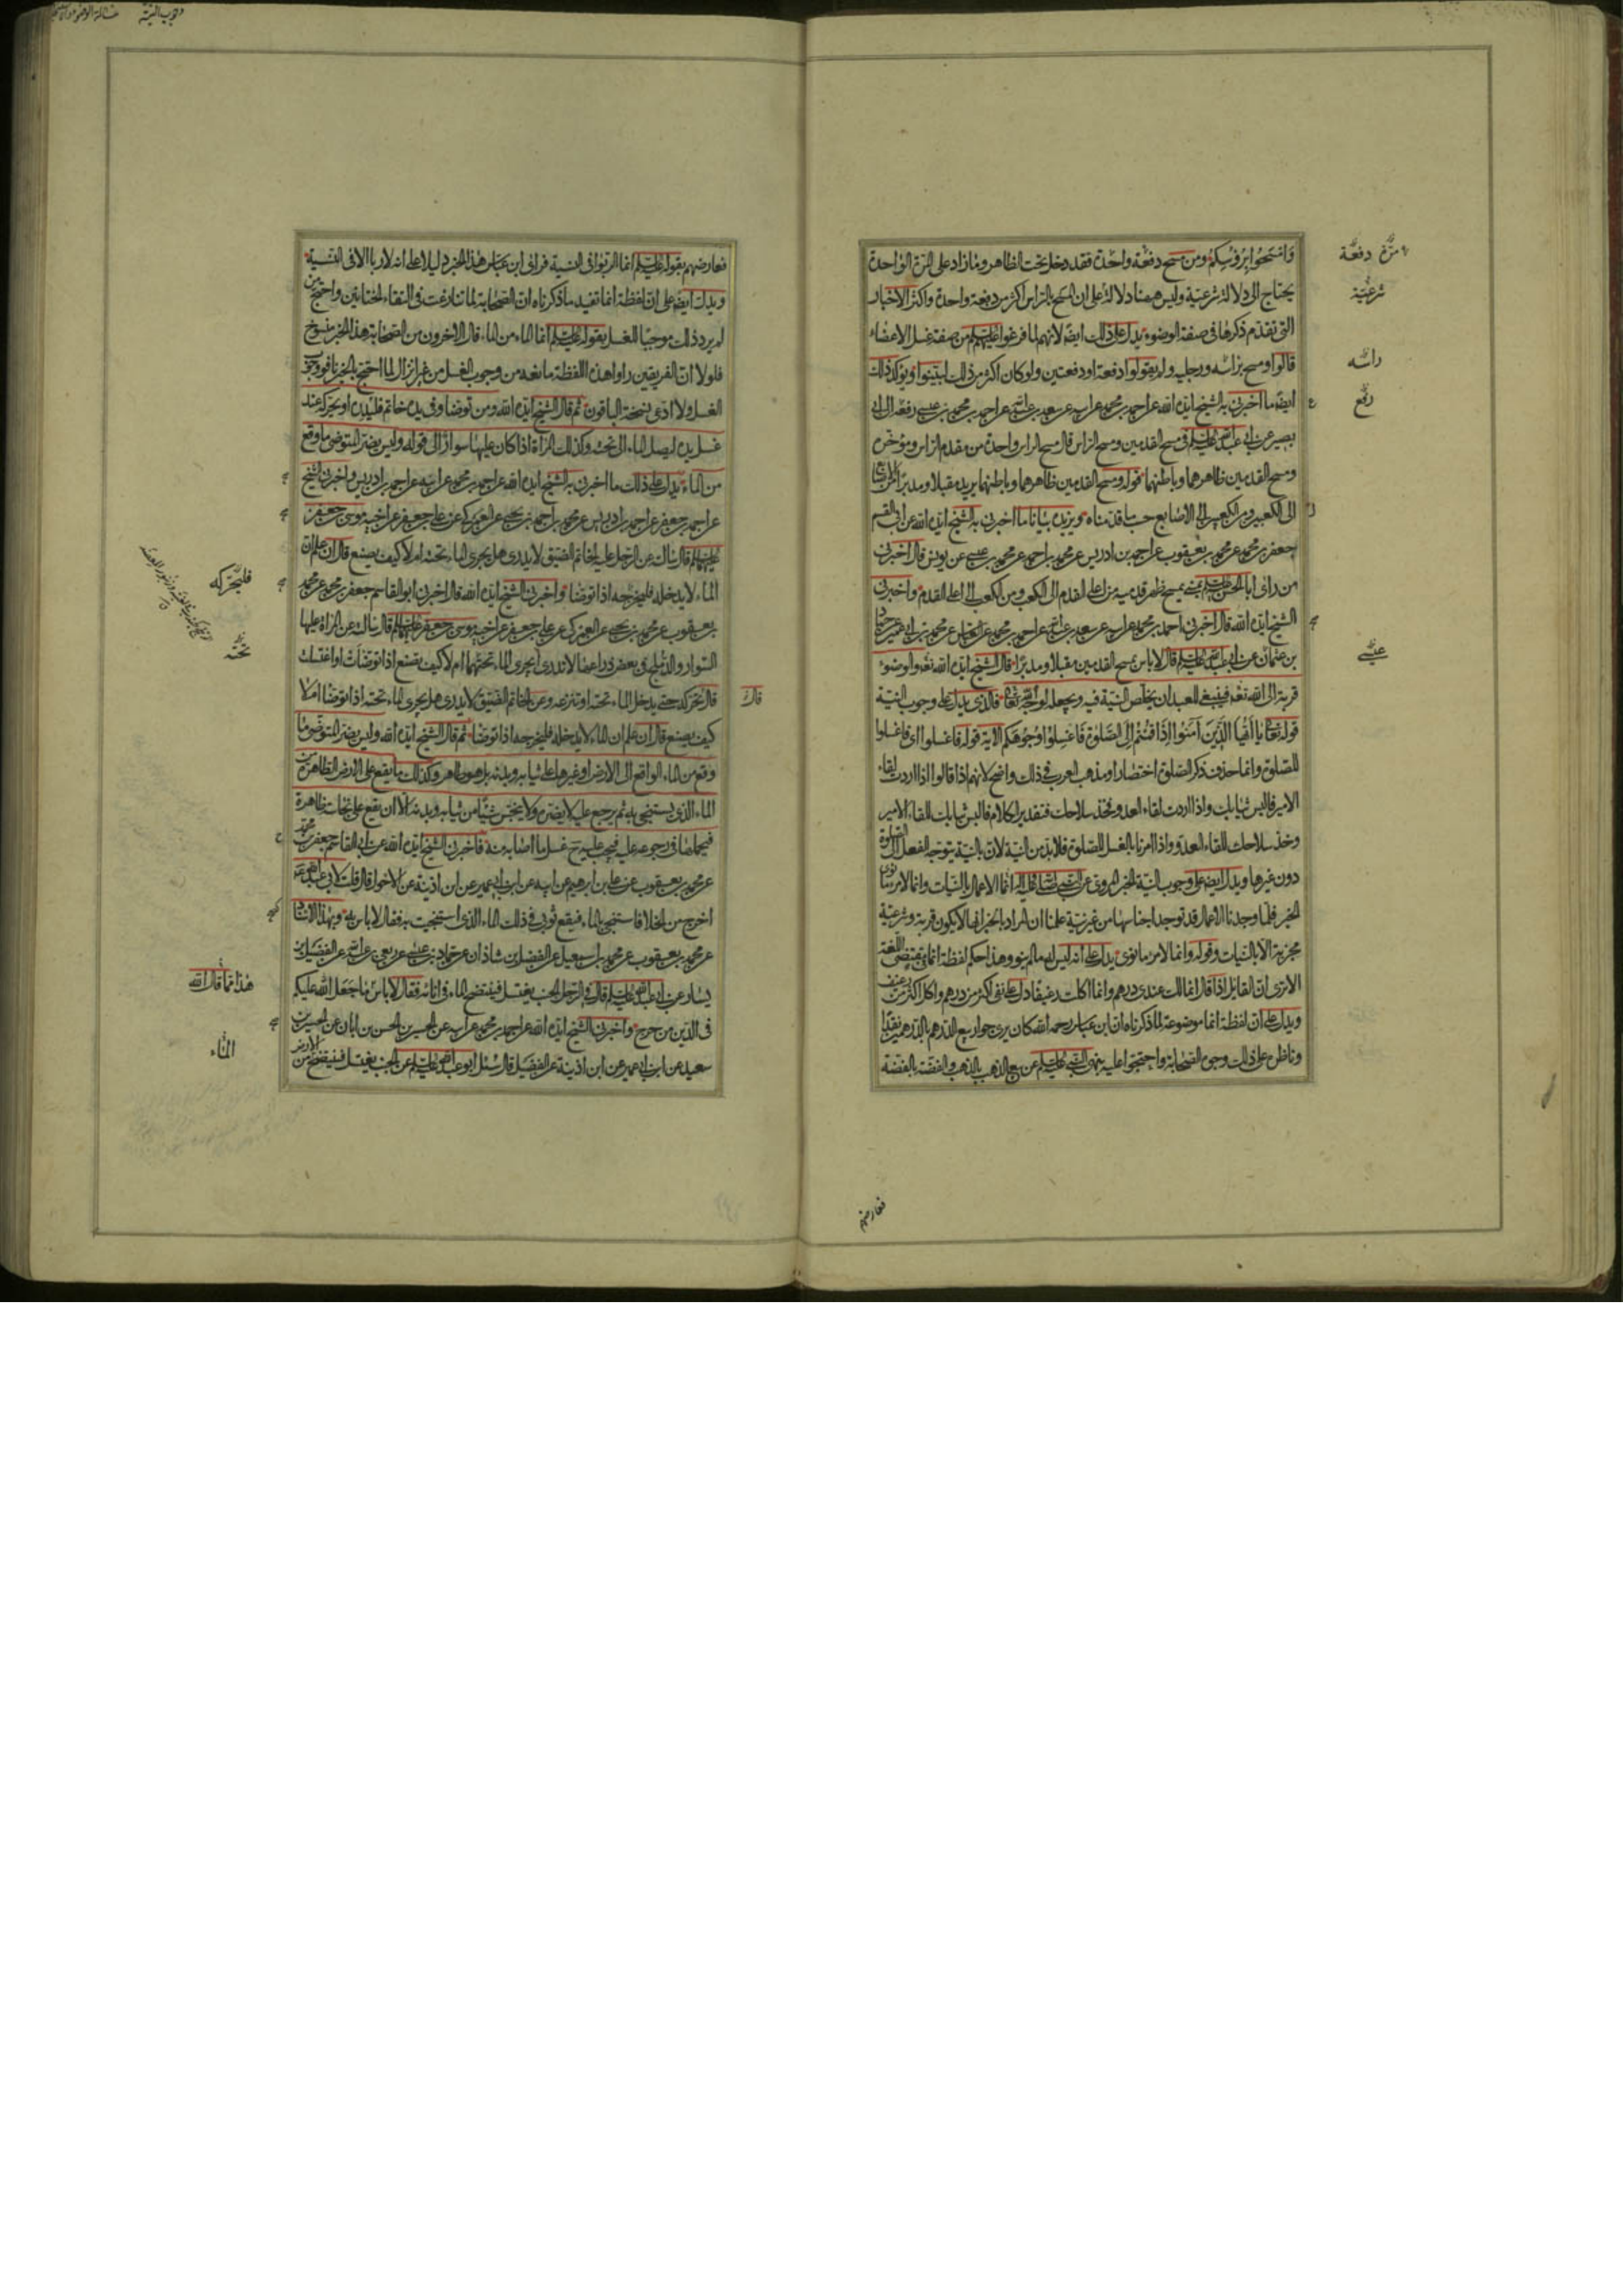 وَامْسَحُوا بِرُؤُسِكُمْ ومن مسح دفعة واحدة فقد دخل تحت الظاهر وما زاد على المرة الواحدة
يحتاج الى دلالة شرعيّة وليس ههنا دلالة على ان المسح بالراس اكثر من دفعة واحدة واكثر الاخبار
التى تقدم ذكرها فى صفة الوضوء يدل على ذلك ايضا لانهم لما فرغوا عليهم من صفة غسل الاعضاء
قالوا ومسح براسه ورجليه ولم يقولوا دفعة او دفعتين ولو كان اكثر من ذلك لبيّنوا ويؤكد ذلك
ايضا ما اخبرنى به الشيخ ايده الله عن احمد بن محمد عن ابيه عن سعد بن عبدالله عن احمد بن محمد بن عيسى رفعه الى ابى
بصير عن ابى عبدالله عليه السلم فى مسح القدمين ومسح الراس قال مسح الراس واحدة من مقدم الراس ومؤخره
ومسح القدمين ظاهرهما وباطنهما قوله ومسح القدمين ظاهرهما وباطنهما يريد مقبلا ومدبرا
الى الكعبين ومن الكعبين الى الاصابع حسب ما قدمناه ويزيده بيانا ما اخبرنى به الشيخ ايده الله عن ابى القسم
جعفر بن محمد عن محمد بن يعقوب عن احمد بن ادريس عن محمد بن احمد عن محمد بن عيسى عن يونس قال اخبرنى
من راى ابا الحسن عليه السلم بمنى يمسح ظهر قدميه من اعلى القدم الى الكعب ومن الكعب الى اعلى القدم واخبرنى
الشيخ ايده الله قال اخبرنى احمد بن محمد عن ابيه عن سعد بن عبدالله عن احمد بن محمد عن العباس عن محمد بن ابى عمير عن حماد
بن عثمان عن ابى عبدالله عليه السلم قال لا باس بمسح القدمين مقبلا ومدبرا قال الشيخ ايده الله تعه والوضوء
قربة الى الله تعه فينبغى للعبد ان يخلص النية فيه ويجعله لوجه الله تعالى فالذى يدل على وجوب النية
قوله تعالى يَا اَيُّهَا الَّذِينَ آمَنُوا اِذَا قُمْتُمْ اِلَى الصَّلٰوةِ فَاغْسِلُوا وُجُوهَكُمْ الاية قوله فاغسلوا اى فاغسلوا
للصلوة وانما حذف ذكر الصلوة اختصارا ومذهب العرب فى ذلك واضح لانهم اذا قالوا اذا اردت لقاء
الامير فالبس ثيابك واذا اردت لقاء العدو فخذ سلاحك فتقدير الكلام فالبس ثيابك للقاء الامير
وخذ سلاحك للقاء العدو واذا امرنا بالغسل للصلوة فلابد من النية لان بالنية يتوجه الفعل الى الصلوة
دون غيرها ويدل ايضا على وجوب النية الخبر المروى عن النبى صلى الله عليه واله انما الاعمال بالنيات وانما لامرئ ما نوى
الخبر فلما وجدنا الاعمال قد توجد اجناسها من غير نية علمنا ان المراد بالخبر انها لا تكون قربة وشرعيّة
مجزية الا بالنيات وقوله وانما لامرئ ما نوى يدل على انه ليس له ما لم ينو وهذا حكم لفظة انما فى مقتضى اللغة
الا ترى ان القايل اذا قال انما لك عندى درهم وانما اكلت رغيفا دل على نفى اكثر من درهم واكل اكثر من رغيف
ويدل على ان لفظة انما موضوعة لما ذكرناه ان ابن عباس رحمه الله كان يرى جواز بيع الدرهم بالدرهمين نقدا
وناظره على ذلك وجوه الصحابة واحتجوا عليه بنهى النبى عليه السلم عن بيع الذهب بالذهب والفضة بالفضة
مرّة دفعة
شرعيّة
راسه
رفع
عيسى
فعارضهم
فعارضهم بقوله عليه السلم انما الربوا فى النسية فراى ابن عباس هذا الخبر دليلا على انه لا ربا الا فى النسية
ويدل ايضا على ان لفظة انما تفيد ما ذكرناه ان الصحابة لما تنازعت فى التقاء الختانين واحتج من
لم ير ذلك موجبا للغسل بقوله عليه السلم انما الماء من الماء قال الاخرون من الصحابة هذا الخبر منسوخ
فلولا ان الفريقين راوا هذه اللفظة مانعة من وجوب الغسل من غير انزال لما احتج بالخبر نافو وجوب
الغسل ولا ادعى نسخه الباقون ثم قال الشيخ ايده الله ومن توضا وفى يده خاتم فليدره او يحركه عند
غسل يده ليصل الماء الى تحته وكذلك المراة اذا كان عليها سوار الى قوله وليس يضر المتوضى ما وقع
من الماء يدل على ذلك ما اخبرنى به الشيخ ايده الله عن احمد بن محمد عن ابيه عن احمد بن ادريس واخبرنى الشيخ
عن احمد بن جعفر عن احمد بن ادريس عن محمد بن احمد بن يحيى عن العمركى عن على بن جعفر عن اخيه موسى بن جعفر
عليهما السلم قال سالته عن الرجل عليه الخاتم الضيق لا يدرى هل يجرى الماء تحته ام لا كيف يصنع قال ان علم ان
الماء لا يدخله فليخرجه اذا توضا واخبرنى الشيخ ايده الله قال اخبرنى ابو القاسم جعفر بن محمد عن محمد
بن يعقوب عن محمد بن يحيى عن العمركى عن على بن جعفر عن اخيه موسى بن جعفر عليهما السلم قال سالته عن المراة عليها
السوار والدملج فى بعض ذراعها لا تدرى ايجرى الماء تحتهما ام لا كيف تصنع اذا توضات او اغتسلت
قال تحركه حتى يدخل الماء تحته او تنزعه وعن الخاتم الضيق لا يدرى هل يجرى الماء تحته اذا توضا ام لا
كيف يصنع قال ان علم ان الماء لا يدخله فليخرجه اذا توضا ثم قال الشيخ ايده الله وليس يضر المتوضى ما
وقع من الماء الواقع الى الارض او غيرها على ثيابه وبدنه بل هو طاهر وكذلك ما يقع على الارض الطاهرة من
الماء الذى يستنجى به ثم يرجع عليه لا يضره ولا ينجس شيئا من ثيابه وبدنه الا ان يقع على نجاسة ظاهرة
فيحملها فى رجوعه عليه فيجب عليه ح غسل ما اصابه منه فاخبرنى الشيخ ايده الله عن ابى القاسم جعفر بن محمد
عن محمد بن يعقوب عن على بن ابرهيم عن ابيه عن ابن ابى عمير عن ابن اذينة عن الاحول قال قلت لابى عبدالله عه
اخرج من الخلا فاستنجى بالماء فيقع ثوبى فى ذلك الماء الذى استنجيت به فقال لا باس به وبهذا الاسناد
عن محمد بن يعقوب عن محمد بن اسمعيل عن الفضل بن شاذان عن حماد بن عيسى عن ربعى بن عبدالله عن الفضيل بن
يسار عن ابى عبدالله عليه السلم قال فى الرجل الجنب يغتسل فينتضح الماء فى انائه فقال لا باس ما جعل الله عليكم
فى الدين من حرج واخبرنى الشيخ ايده الله عن احمد بن محمد عن ابيه عن الحسين بن الحسن بن ابان عن الحسين بن
سعيد عن ابن ابى عمير عن ابن اذينة عن الفضيل قال سئل ابو عبدالله عليه السلم عن الجنب يغتسل فينتضح من الارض
قال
فليحركه
تحته
هذا مما قال الله
الماء
وجوب النية